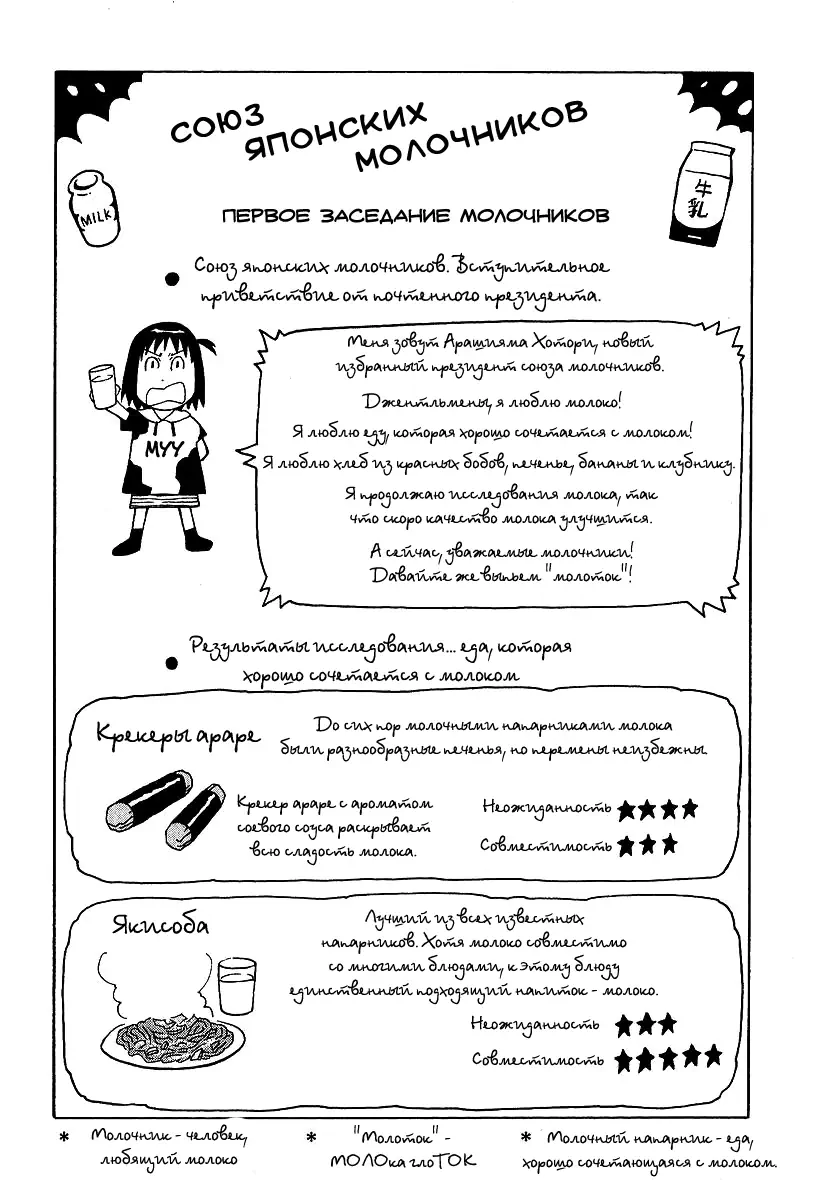 СОЮЗ
ЯПОНСКИХ
МОЛОЧНИКОВ
MILK
牛乳
ПЕРВОЕ ЗАСЕДАНИЕ МОЛОЧНИКОВ
Союз японских молочников. Вступительное
приветствие от почтенного президента.
Меня зовут Арашияма Хотори, новый
избранный президент союза молочников.
Джентльмены, я люблю молоко!
Я люблю еду, которая хорошо сочетается с молоком!
Я люблю хлеб из красных бобов, печенье, бананы и клубнику.
МУУ
Я продолжаю исследования молока, так
что скоро качество молока улучшится.
А сейчас, уважаемые молочники!
Давайте же выпьем "молоток"!
Результаты исследования... еда, которая
хорошо сочетается с молоком
Крекеры араре
До сих пор молочными напарниками молока
были разнообразные печенья, но перемены неизбежны.
Крекер араре с ароматом
соевого соуса раскрывает
всю сладость молока.
Неожиданность ★★★★
Совместимость ★★★
Якисоба
Лучший из всех известных
напарников. Хотя молоко совместимо
со многими блюдами, к этому блюду
единственный подходящий напиток - молоко.
Неожиданность ★★★
Совместимость ★★★★★
* Молочник - человек,
любящий молоко
* "Молоток" -
МОЛОка глоТОК
* Молочный напарник - еда,
хорошо сочетающаяся с молоком.